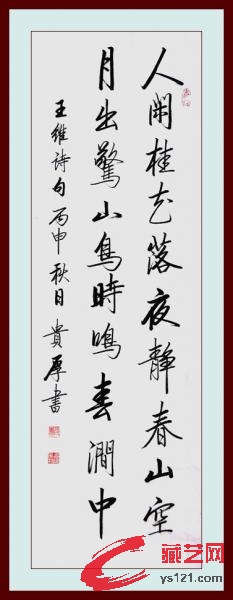 人閑桂花落夜静春山空
月出驚山鳥時鳴春澗中
王维诗句丙申秋月貴厚書
藏艺网
ys121.com